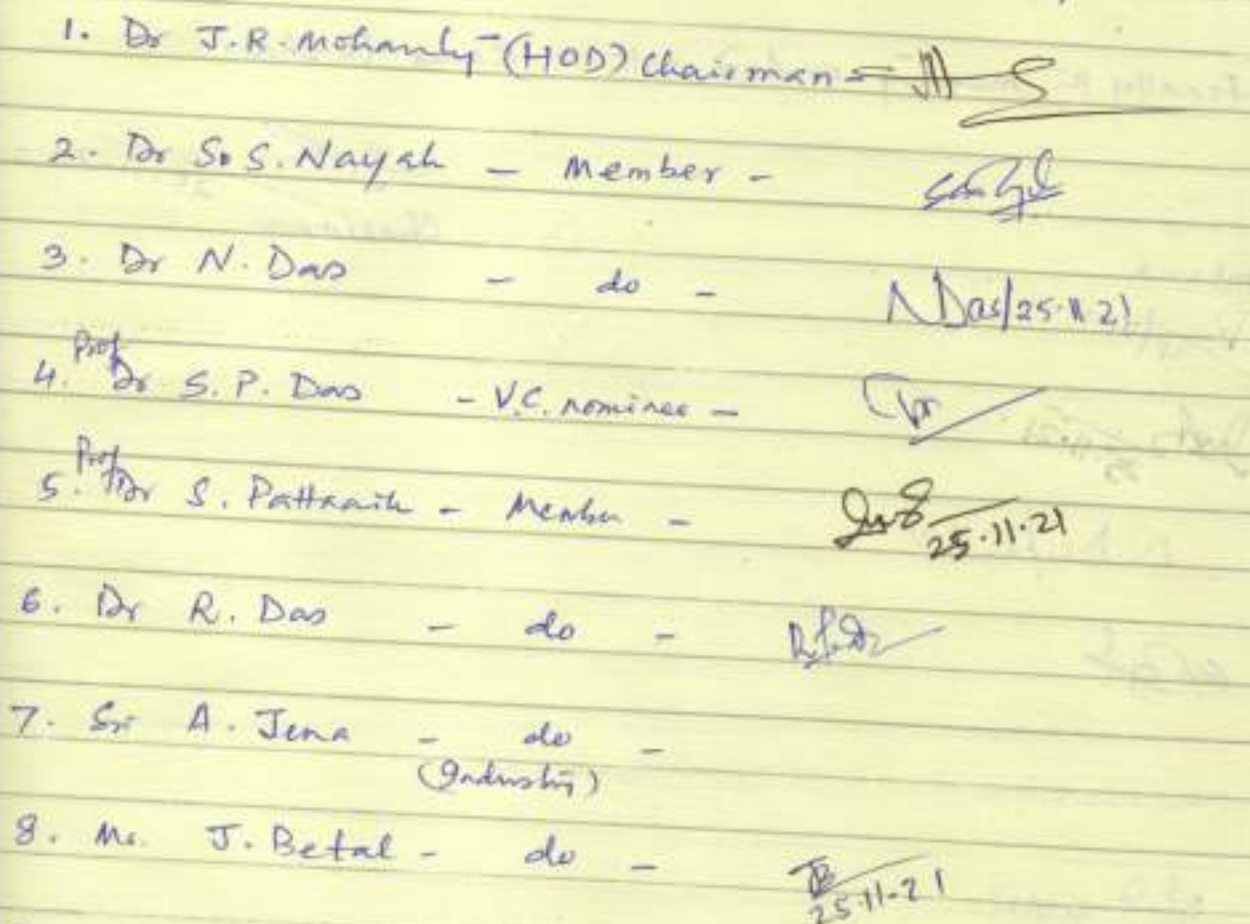 1. Dr J.R. Mohanty (HOD) Chairman -
2. Dr S. S. Nayak - Member -
3. Dr N. Das - do - NDas/25.11.21
4. Prof Dr S. P. Das - V.C. nominee -
5. Prof Dr S. Pattnaik - Member -
25.11.21
6. Dr R. Das - do -
7. Sri A. Jena - do -
(Industry)
8. Ms. J. Betal - do - JB
25-11-21